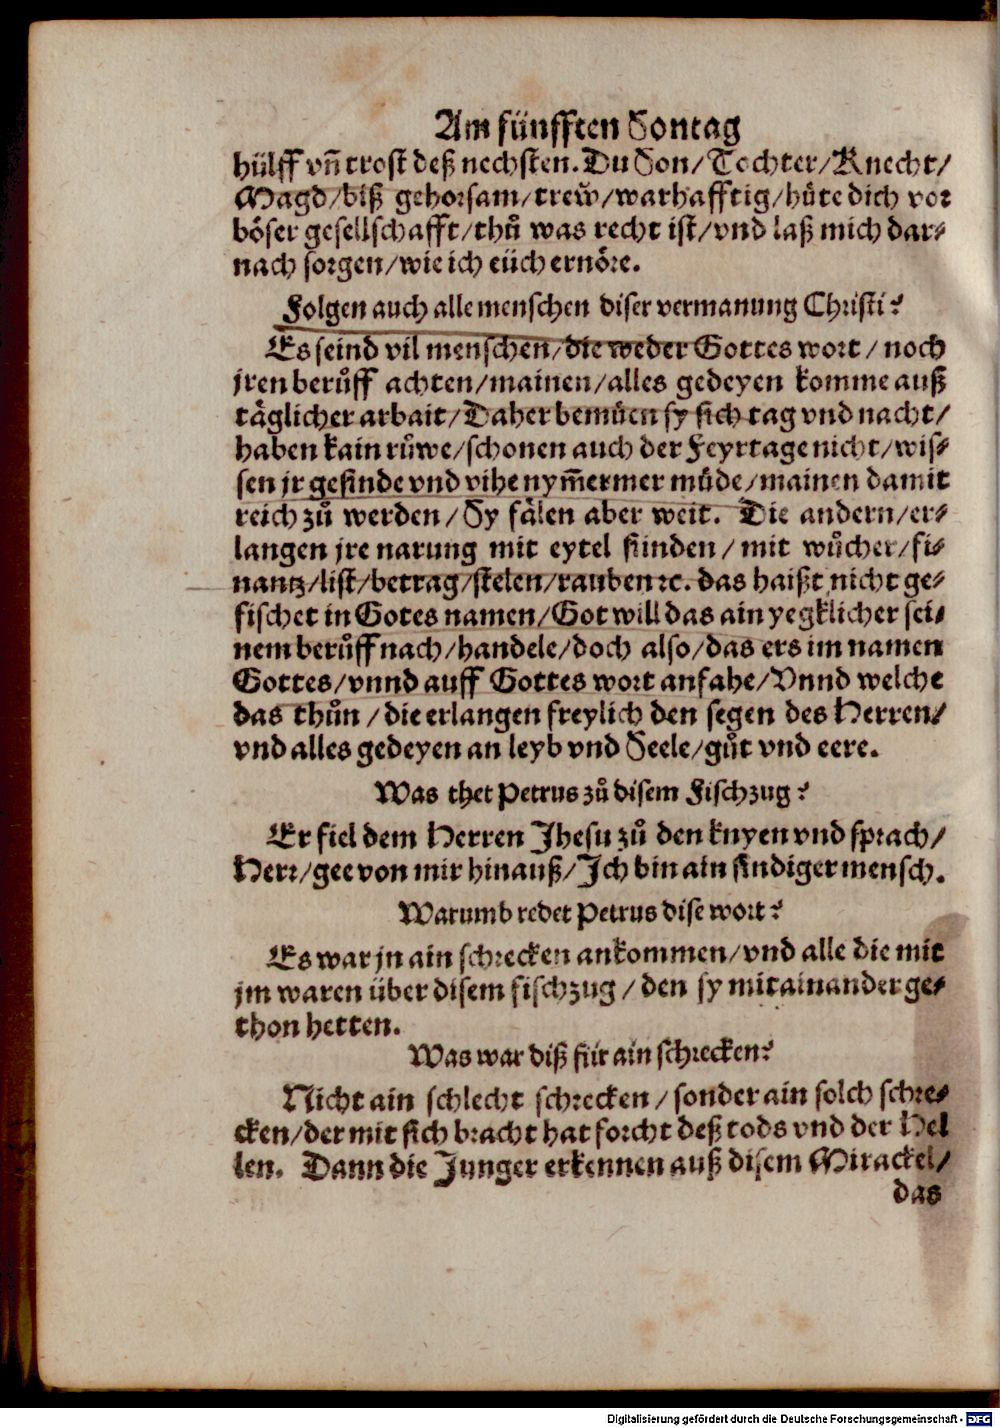 Am fünfften Sontag
hülff vn̄ trost deß nechsten. Du Son/ Tochter/ Knecht/
Magd/ biß gehorsam/ trew̆/ warhafftig/ hüte dich vor
böser gesellschafft/ thů was recht ist/ vnd laß mich dar⸗
nach sorgen/ wie ich eüch ernöre.
Folgen auch alle menschen diser vermanung Christi?
Es seind vil menschen/ die weder Gottes wort/ noch
jren berůff achten/ mainen/ alles gedeyen komme auß
täglicher arbait/ Daher bemüen sy sich tag vnd nacht/
haben kain růwe/ schonen auch der Feyrtage nicht/ wis⸗
sen jr gesinde vnd vihe nym̄ermer müde/ mainen damit
reich zů werden/ Sy fälen aber weit. Die andern/ er⸗
langen jre narung mit eytel sünden/ mit wůcher/ fi⸗
nantz/ list/ betrag/ stelen/ rauben ꝛc. das haißt nicht ge⸗
fischet in Gotes namen/ Got will das ain yegklicher sei⸗
nem berůff nach/ handele/ doch also/ das ers im namen
Gottes/ vnnd auff Gottes wort anfahe/ Vnnd welche
das thůn/ die erlangen freylich den segen des Herren/
vnd alles gedeyen an leyb vnd Seele/ gůt vnd eere.
Was thet Petrus zů disem Fischzug?
Er fiel dem Herren Jhesu zů den knyen vnd sprach/
Herr/ gee von mir hinauß/ Ich bin ain sündiger mensch.
Warumb redet Petrus dise wort?
Es war jn ain schrecken ankommen/ vnd alle die mit
jm waren über disem fischzug/ den sy mitainander ge⸗
thon hetten.
Was war diß für ain schrecken?
Nicht ain schlecht schrecken/ sonder ain solch schre⸗
cken/ der mit sich bracht hat forcht deß tods vnd der Hel
len. Dann die Junger erkennen auß disem Mirackel/
das
Digitalisierung gefördert durch die Deutsche Forschungsgemeinschaft - DFG